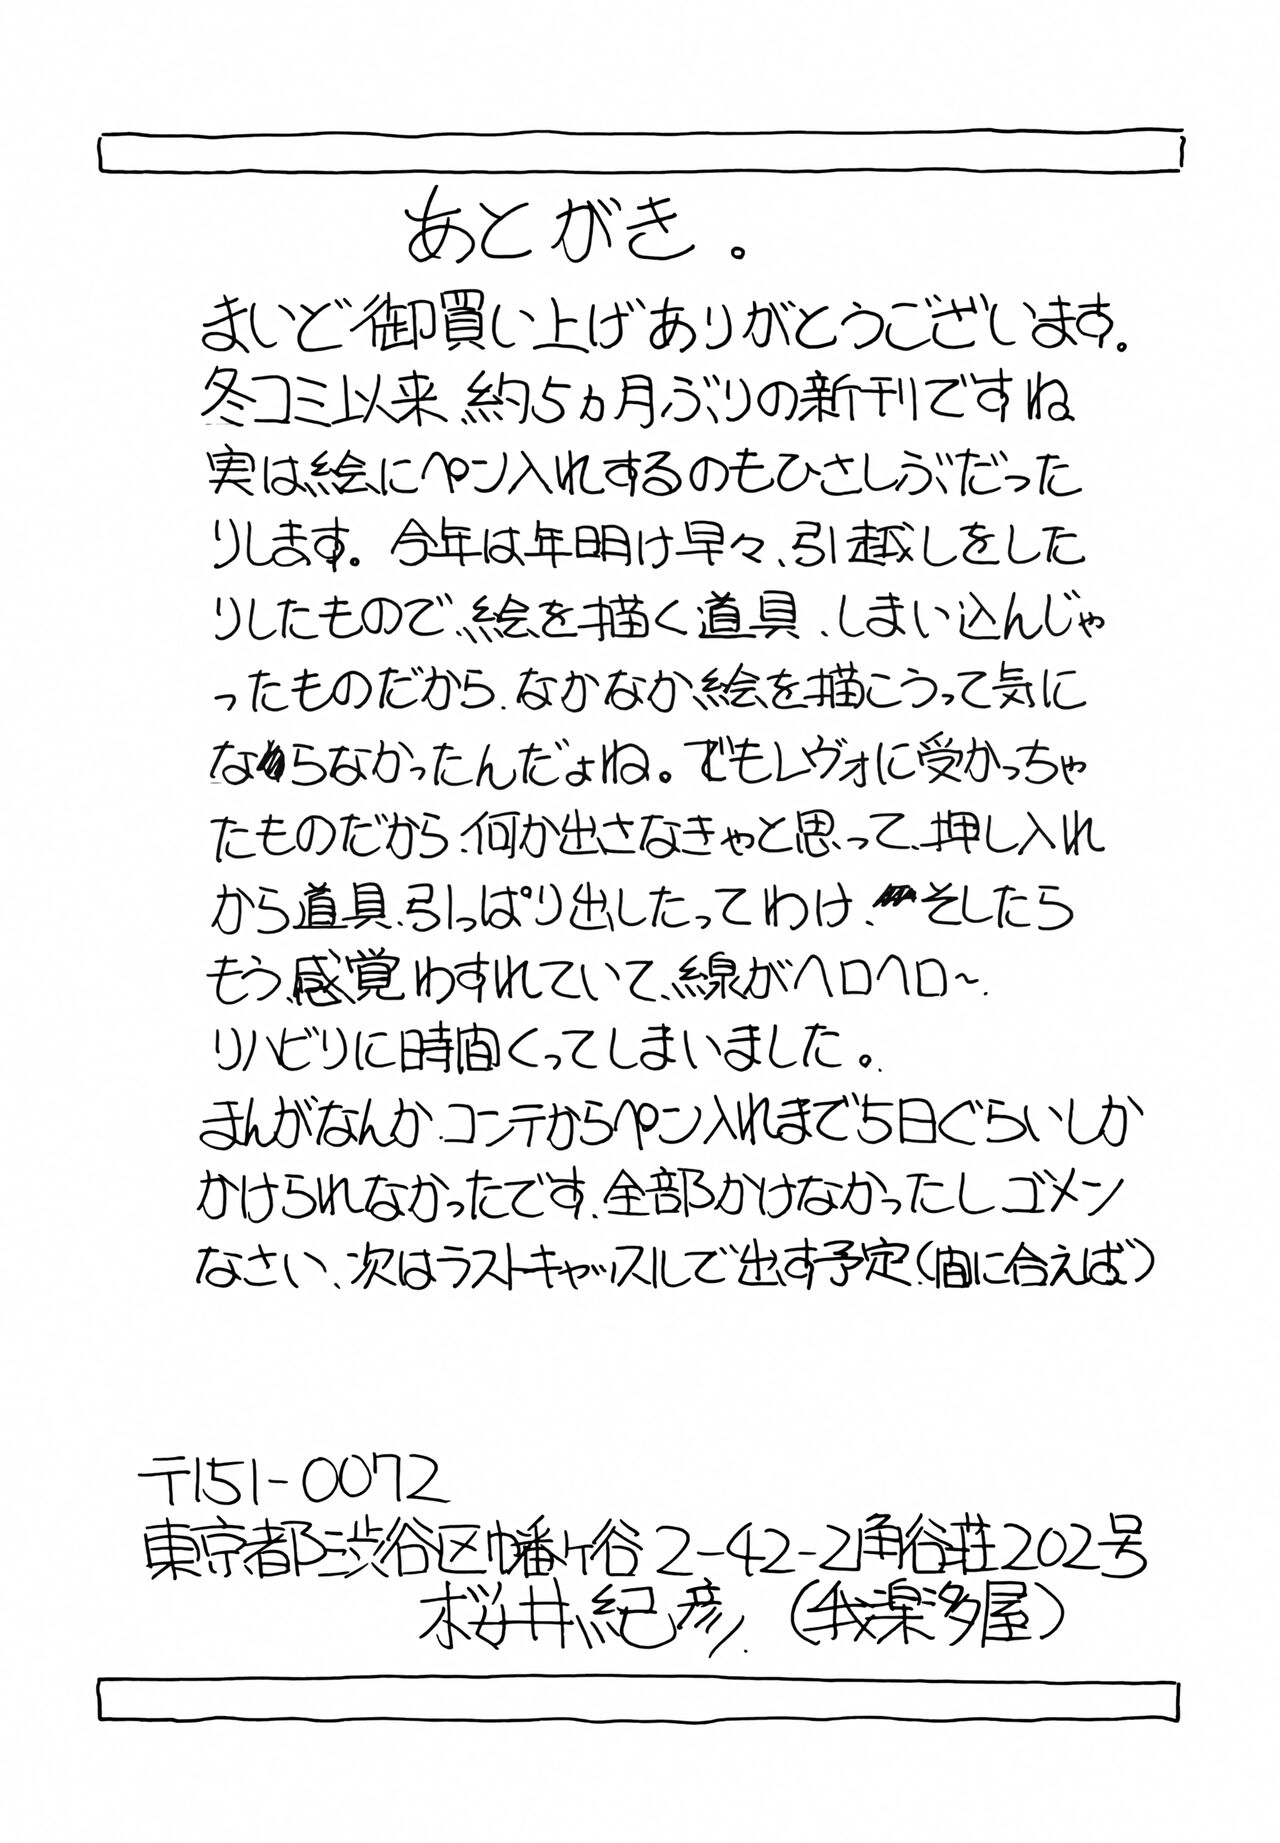 あとがき。
まいど御買い上げありがとうございます。
冬コミ以来、約5ヵ月ぶりの新刊ですね
実は絵にペン入れするのもひさしぶだった
りします。今年は年明け早々、引越しをした
りしたもので、絵を描く道具、しまい込んじゃ
ったものだから、なかなか絵を描こうって気に
なならなかったんだよね。でもレヴォに受かっちゃ
たものだから、何か出さなきゃと思って、押し入れ
から道具、引っぱり出したってわけ、そしたら
もう、感覚わすれていて、線がヘロヘロ~.
リハビリに時間くってしまいました。
まんがなんか、コンテからペン入れまで5日ぐらいしか
かけられなかったです、全部かけなかったし、ゴメン
なさい、次はラストキャッスルで出す予定、(間に合えば)
〒151-0072
東京都渋谷区幡ヶ谷2-42-2角谷荘202号
桜井紀彦、(我楽多屋)